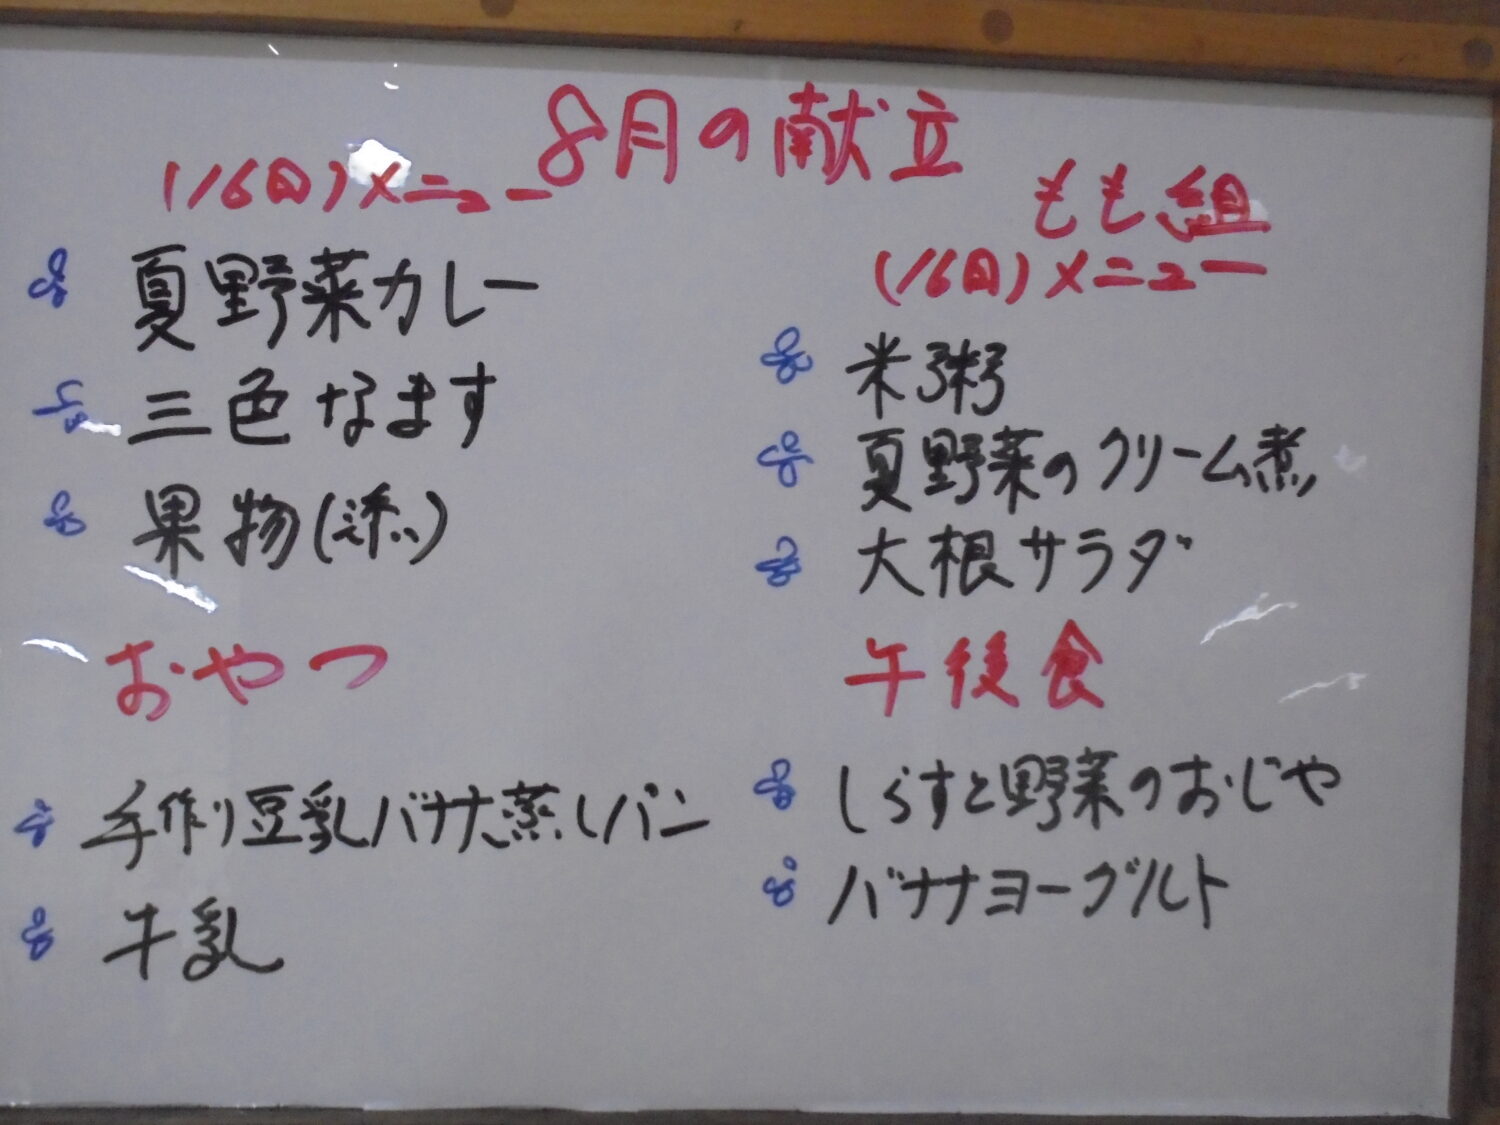 8月の献立
(16日)メニュー
夏野菜カレー
三色なます
果物(添い)
おやつ
手作り豆乳バナナ蒸しパン
牛乳
もも組
(16日)メニュー
米粥
夏野菜のクリーム煮
大根サラダ
午後食
しらすと野菜のおじや
バナナヨーグルト